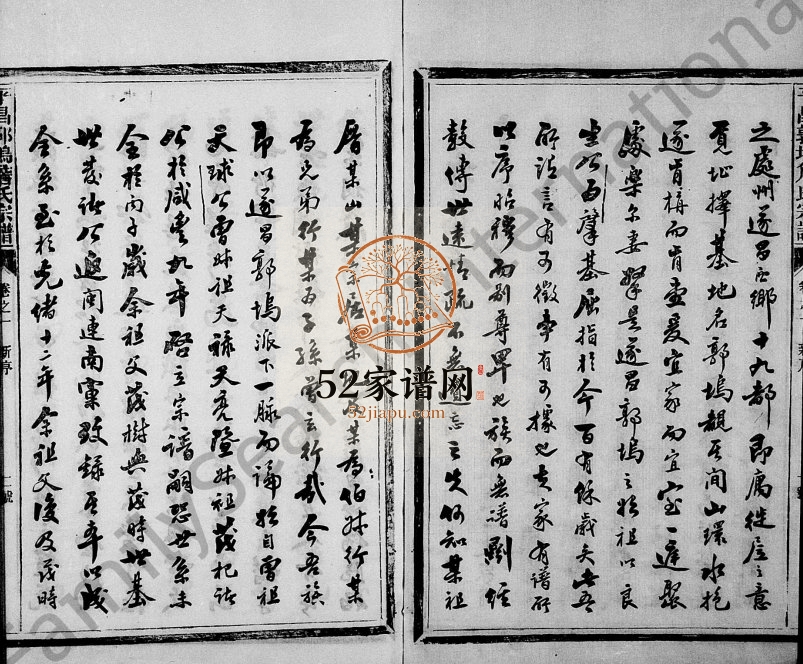 之處州遂昌西鄉十九都即萬徙居之意
覓址擇基地名郭塢觀其間山環水抱
遂肯構而肯堂爰宜家而宜室一運聚
處樂尔妻孥是遂昌郭塢之始祖以良
生公而肇基屈指於今百有餘歲矣此吾
所訪言有可徵事有可據也夫家有譜所
以序昭穆而别尊卑也族而無譜剛
數傳世遠情疏不無遺忘之失何知某祖
厝某山某 居某 某為伯叔行某
為兄弟行某為子孫 云行哉今吾族
即以遂昌郭塢派下一脉而論始自曾祖
天球公曾叔祖天祿天亮隆叔祖茂杞諸
公於咸豐九年啓立宗譜嗣恐世系未
全於丙子歲余祖父茂樹與茂時世基
世發諸公 閩連南 錄 年以成
全系至於光緒十二年余祖父復及茂時
平昌郭塢 氏宗譜
卷之一
新序
二號
52家谱网
52jiapu.com
FamilySearch International